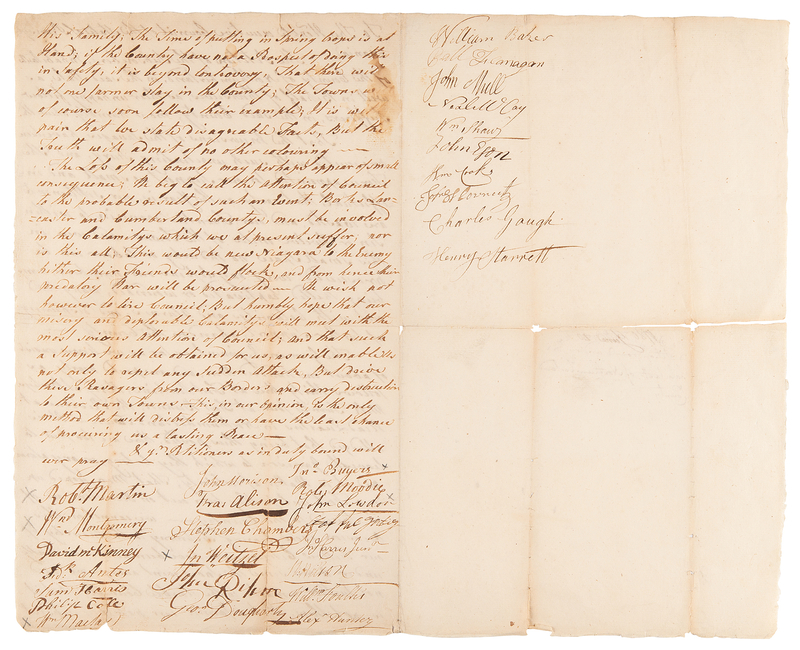 His Family; The Time of putting in Spring Crops is at
Hand; if the Country have not a Prospect of doing this
in Safety, it is beyond controvery, That there will
not one farmer stay in the County; The Towns
of course soon follow their example; It is wt
pain that we state disagreable Facts, But the
Truth will admit of no other colouring —
The Loss of this County may perhaps appear of small
consequence; We beg to call the attention of Council
to the probable result of such an Event; Berks Lan-
caster and Cumberland Countys, must be involved
in the Calamitys which we at present suffer, nor
is this all; This wou'd be new Niagara to the Enemy
hither their Friends wou'd flock, and from hence their
predatory War will be prosecuted — We wish not
however to tire Council; But humbly hope that our
misery and deplorable Calamitys will meet with the
most serious attention of Council; and that such
a Support will be obtained for us, as will enable Us
not only to repel any Sudden Attack, But drive
these Ravagers from our Borders and carry destruction
to their own Towns — This, in our opinion, is the only
method that will distress them or have the least chance
of procuring us a lasting Peace —
& yr. Petitioners as in duty bound will
ever pray —
Robt. Martin
Wm. Montgomery
David McKinney
Fdk. Antes
Saml. Harris
Philip Cole
John Morison
Fras. Alison
Stephen Chambers
Jn. Weitzel
Geo. Dougherty
Jno. Buyers
Robt. Moodie
John Lowdon
Js. Harris Junr.
William Baker
Flanagan
John Mull
Neale McCay
Wm. Shaw
John
Wm Cook
Charles Gough
Henry Starrett